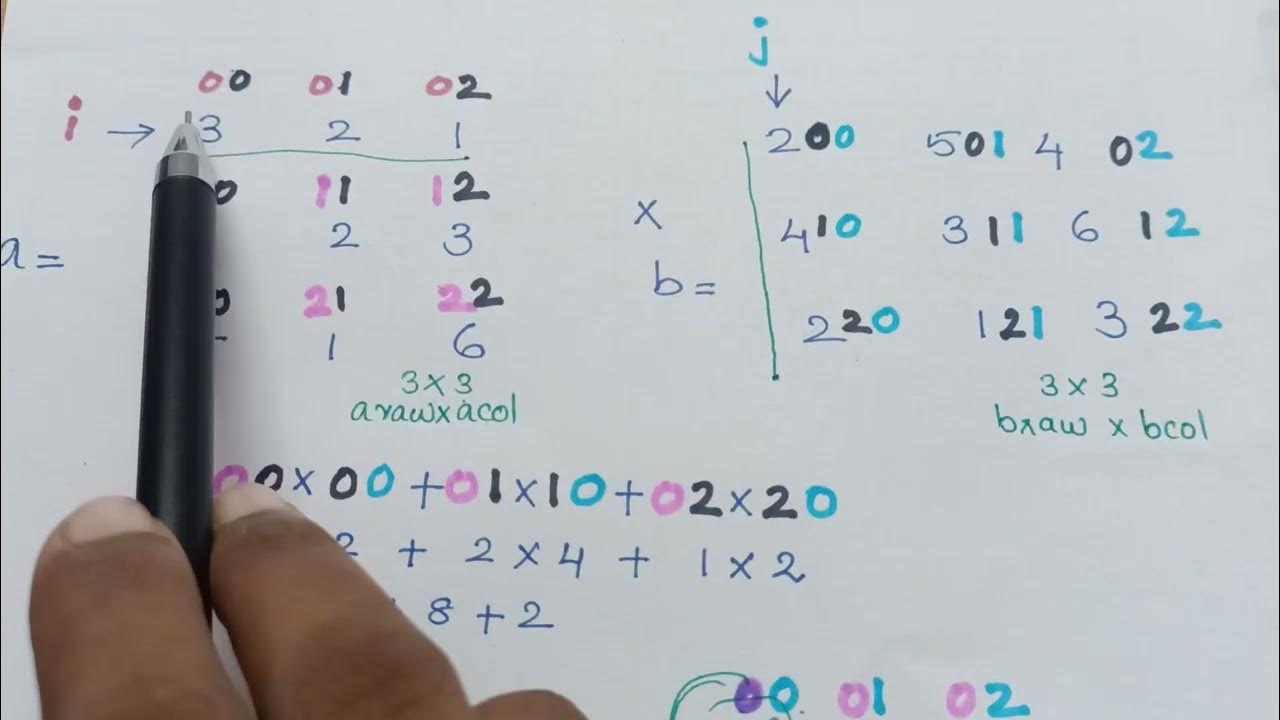 j
00 01 02
i → 3 2 1
200 501 4 02
0 11 12
2 3
x
410 311 6 12
a =
b =
0 21 22
1 6
220 121 3 22
3 x 3
araw x acol
3 x 3
braw x bcol
00 x 00 + 01 x 10 + 02 x 20
2 + 2 x 4 + 1 x 2
8 + 2
00 01 02